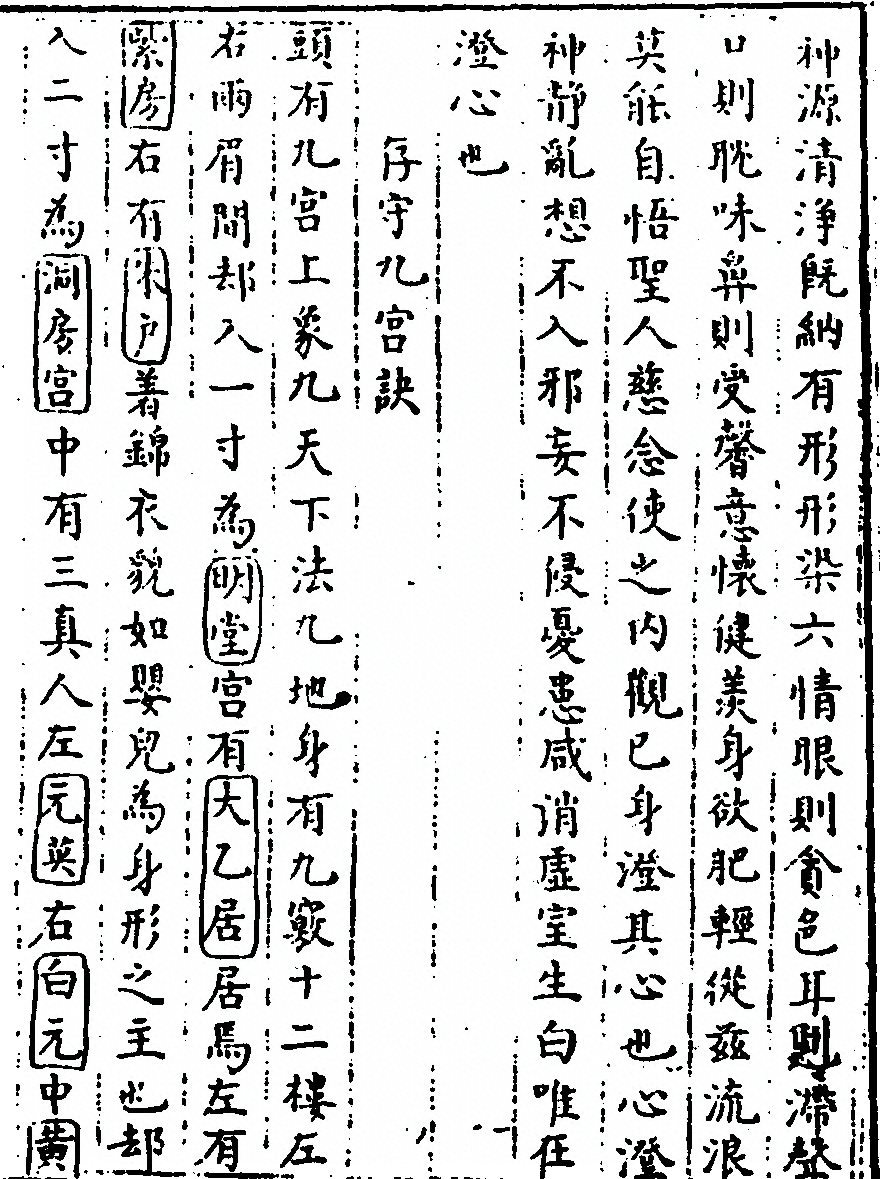 神源清淨既納有形形染六情眼則貪色耳則滯聲
口則耽味鼻則受馨意懷健羨身欲肥輕從茲流浪
莫能自悟聖人慈念使之内觀已身澄其心也心澄
神静亂想不入邪妄不侵憂患咸消虛室生白唯在
澄心也
存守九宮訣
頭有九宮上象九天下法九地身有九竅十二樓左
右兩眉間却入一寸為明堂宮有大乙居居焉左有
紫房右有朱戶著錦衣貌如嬰兒為身形之主也却
入二寸為洞房宮中有三真人左元英右白元中黃